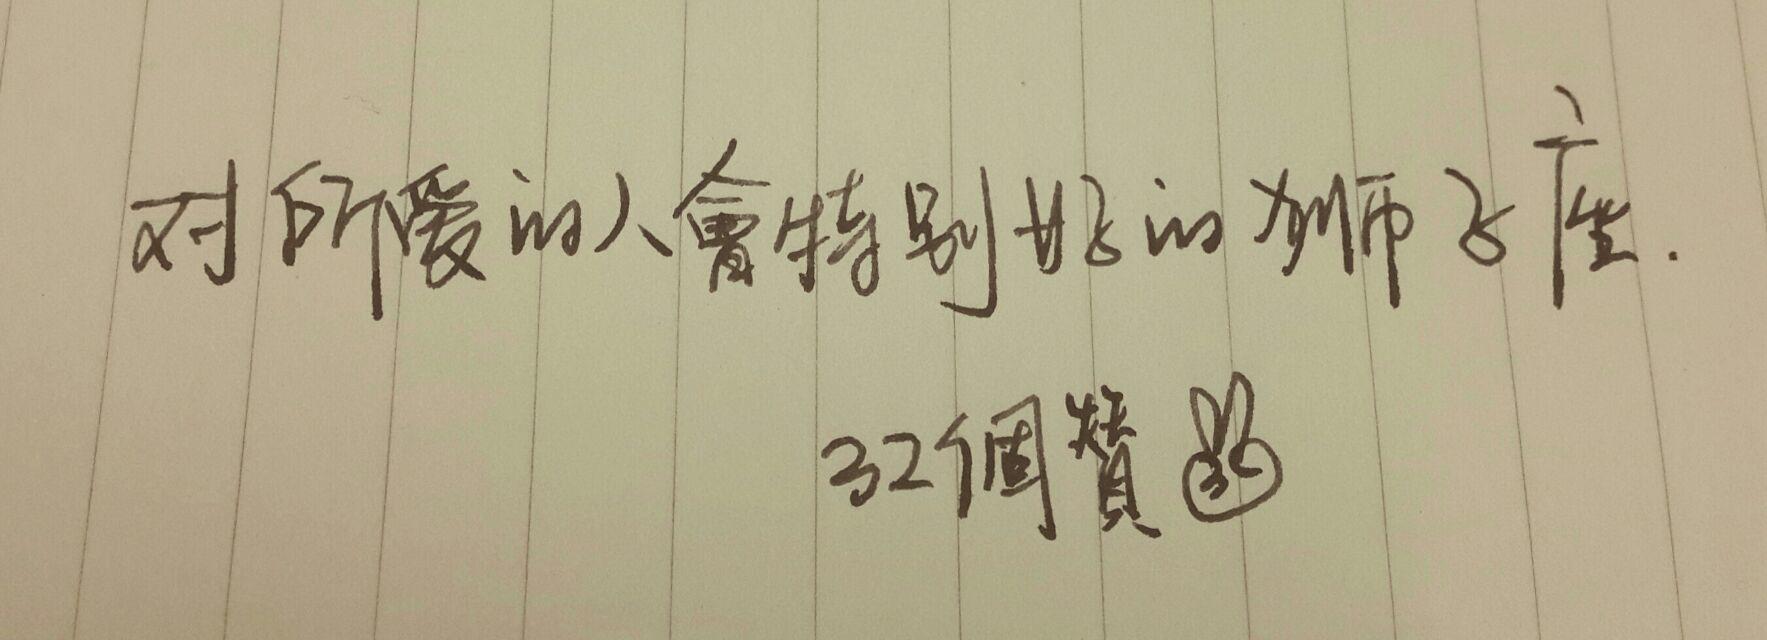 对所愛的人會特別好的狮子座.
32個贊